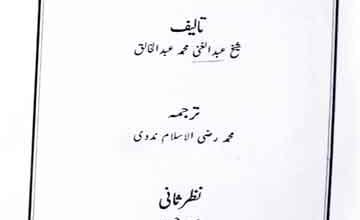 تالیف
شیخ عبد الغنی محمد عبد الخالق
ترجمہ
محمد رضی الاسلام ندوی
نظر ثانی